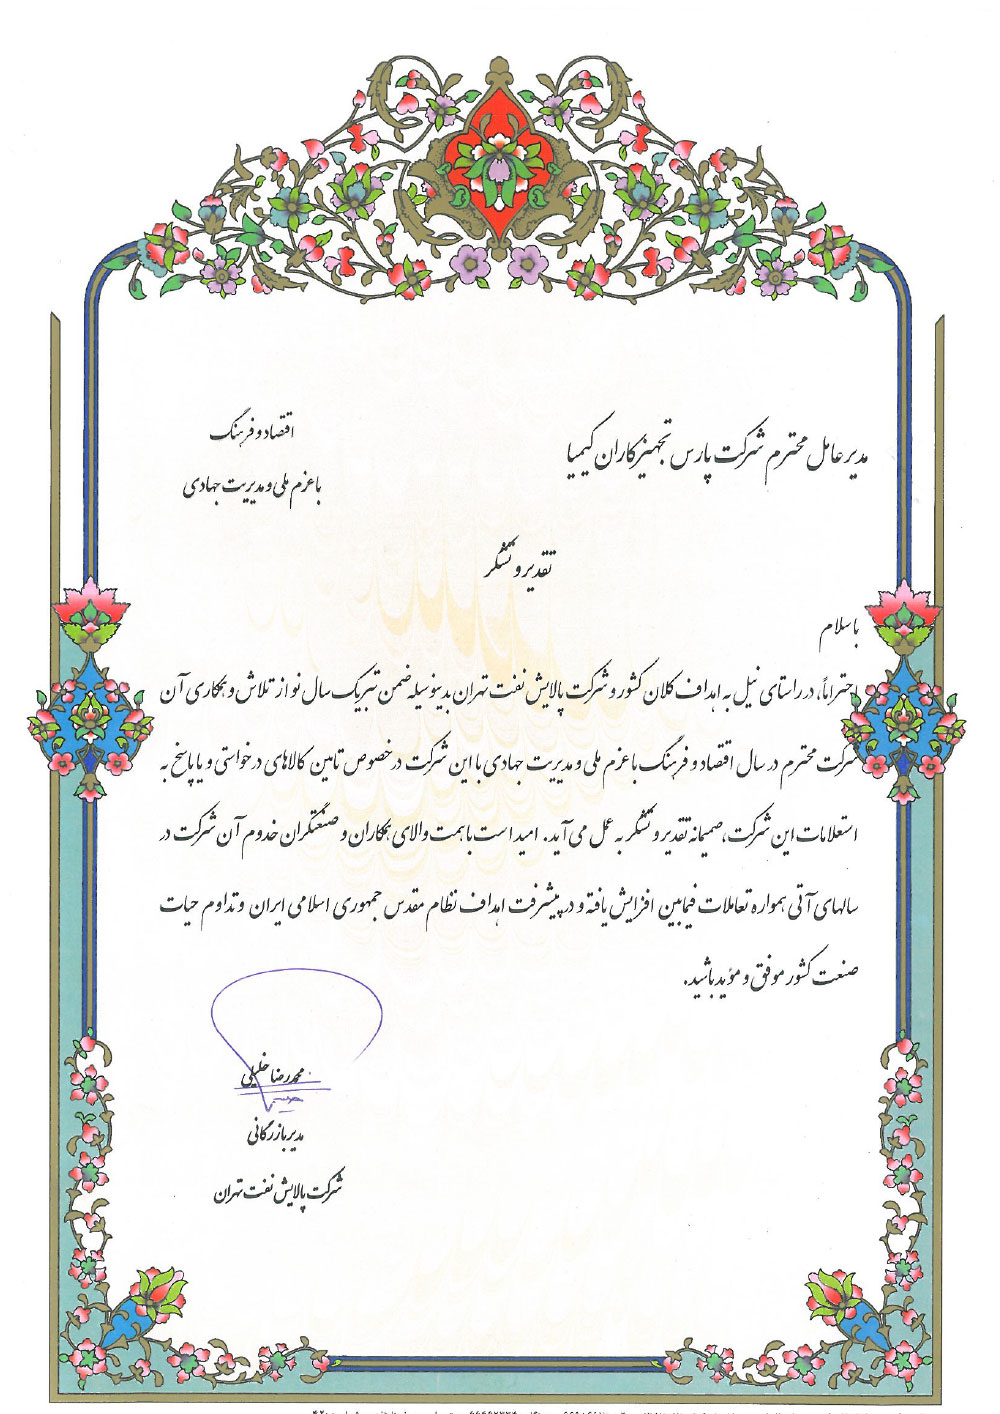 اقتصاد و فرهنگ
با عزم ملی و مدیریت جهادی
مدیر عامل محترم شرکت پارس تجهیزکاران کیمیا
تقدیر و تشکر
با سلام
احتراماً، در راستای نیل به اهداف کلان کشور و شرکت پالایش نفت تهران بدینوسیله ضمن تبریک سال نو از تلاش و همکاری آن
شرکت محترم در سال اقتصاد و فرهنگ با عزم ملی و مدیریت جهادی با این شرکت در خصوص تامین کالاهای درخواستی و یا پاسخ به
استعلامات این شرکت، صمیمانه تقدیر و تشکر به عمل می آید. امید است با همت والای همکاران و صنعتگران خدوم آن شرکت در
سالهای آتی همواره تعاملات فیمابین افزایش یافته و در پیشرفت اهداف نظام مقدس جمهوری اسلامی ایران و تداوم حیات
صنعت کشور موفق و موید باشید.
محمدرضا خلیلی
مدیر بازرگانی
شرکت پالایش نفت تهران